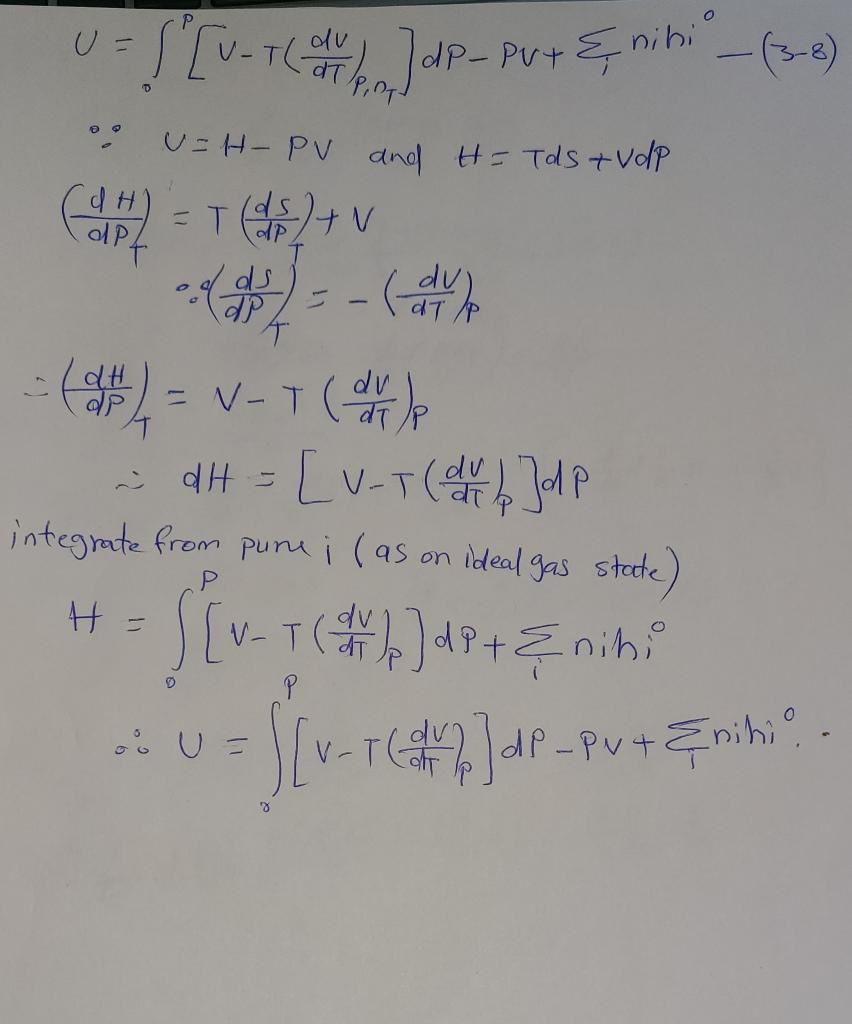 U = ∫₀ᴾ [V - T(dV/dT)P,nT] dP - PV + Σi nihi° — (3-8)
∵ U = H - PV and H = Tds + VdP
(dH/dP)T = T(ds/dP)T + V
∵ (ds/dP)T = - (dV/dT)P
∴ (dH/dP)T = V - T(dV/dT)P
∴ dH = [V - T(dV/dT)P] dP
integrate from pure i (as on ideal gas state)
H = ∫₀ᴾ [V - T(dV/dT)P] dP + Σi nihi°
∴ U = ∫₀ᴾ [V - T(dV/dT)P] dP - PV + Σi nihi°.